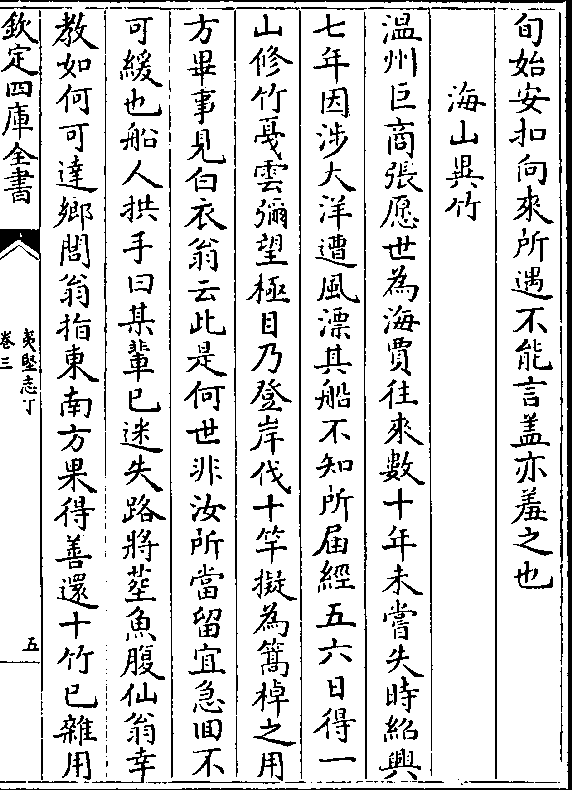 旬始安扣向來所遇不能言盖亦羞之也
海山異竹
温州巨商張愿世為海賈往來數十年未嘗失時紹興
七年因涉大洋遭風漂其船不知所届經五六日得一
山修竹戛雲彌望極目乃登岸伐十竿擬為篙棹之用
方畢事見白衣翁云此是何世非汝所當留宜急回不
可緩也船人拱手曰某輩已迷失路將塟魚腹仙翁幸
教如何可達鄉閭翁指東南方果得善還十竹已雜用
欽定四庫全書
夷堅志丁
卷三
五